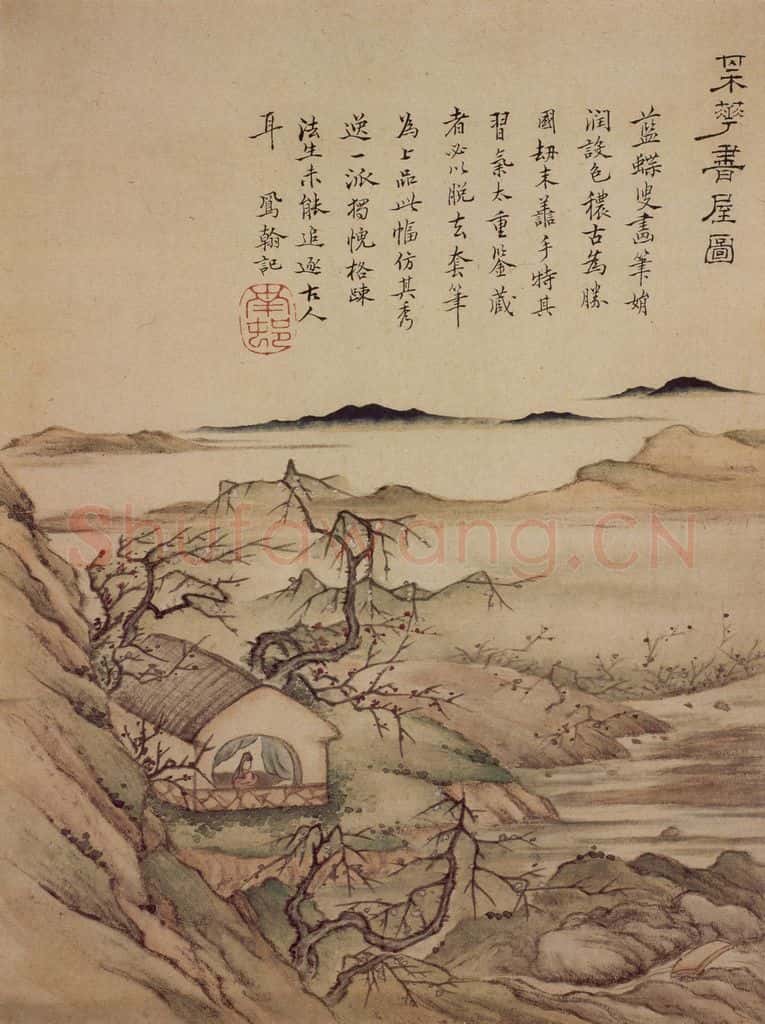 采華書屋圖
藍蝶叟畫筆娟
潤設色穠古為勝
國劫末手特其
習氣太重鑒藏
者必以脫去套筆
為上品此幅仿其秀
逸一派獨愧格踈
法生未能追逐古人
耳 鳳翰記
南邨
Shufawang.CN